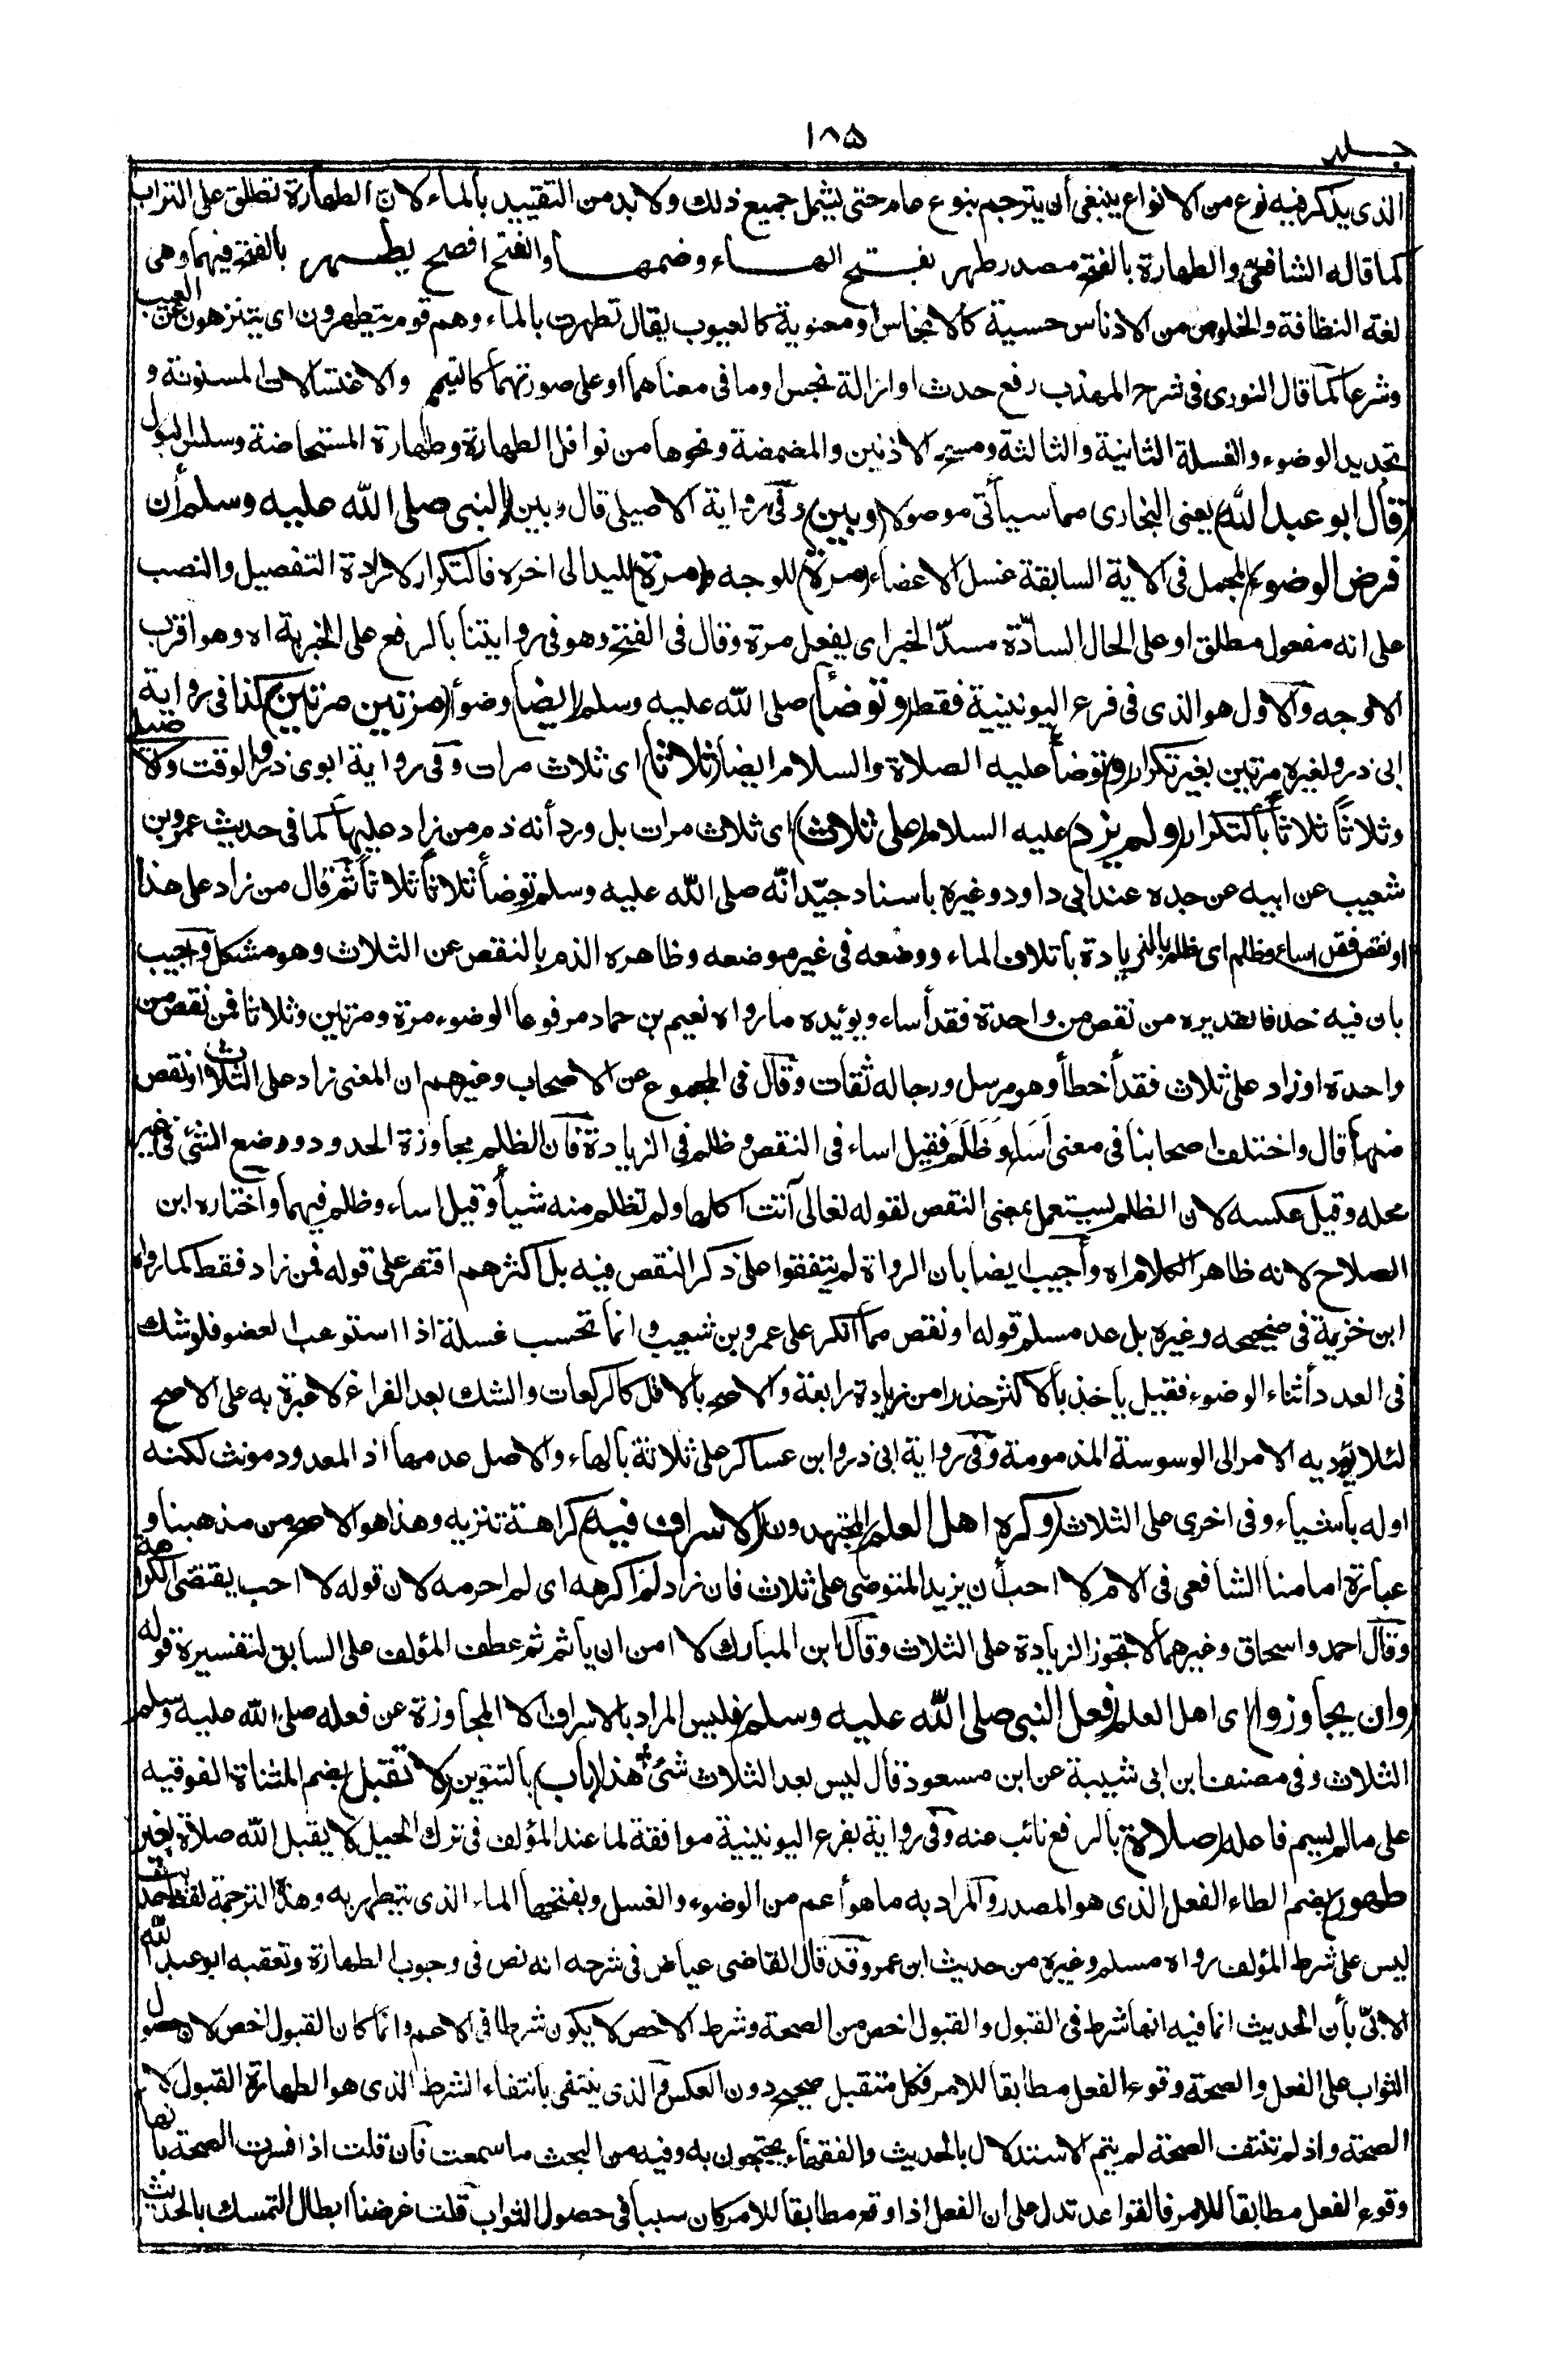 ١٨٥
جلد
الذى يذكر فيه نوع من الانواع ينبغى أن يترجم بنوع عام حتى يشمل جميع ذلك ولا بد من التقييد بالماء لان الطهارة تطلق على التراب
كما قاله الشافعى والطهارة بالفتح مصدر طهر بفتح الهاء وضمها والفتح افصح يطهر بالفتح فيهما وهى
لغة النظافة والخلوص من الادناس حسية كالانجاس او معنوية كالعيوب يقال تطهرت بالماء وهم قوم يتطهرون اى يتنزهون عن العيب
وشرعا كما قال النووى فى شرح المهذب رفع حدث او ازالة نجس او ما فى معناهما او على صورتهما كالتيمم والاغتسالات المسنونة و
تجديد الوضوء والغسلة الثانية والثالثة ومسح الاذنين والمضمضة ونحوها من نوافل الطهارة وطهارة المستحاضة وسلس البول
(قال ابو عبد الله) يعنى البخارى مما سيأتى موصولا (وبين) وفى رواية الاصيلى قال وبين (النبى صلى الله عليه وسلم أن
فرض الوضوء) المجمل فى الاية السابقة غسل الاعضاء (مرة) للوجه (مرة) لليد الى اخره فالتكرار لارادة التفصيل والنصب
على انه مفعول مطلق او على الحال السادّة مسدّ الخبر اى يفعل مرة وقال فى الفتح وهو فى روايتنا بالرفع على الخبرية اه وهو اقرب
الاوجه والاول هو الذى فى فرع اليونينية فقط (وتوضأ) صلى الله عليه وسلم (ايضا) وضوأ (مرتين مرتين) كذا فى رواية
ابى ذر ولغيره مرتين بغير تكرار (و) توضأ عليه الصلاة والسلام ايضا (ثلاثا) اى ثلاث مرات وفى رواية ابوى ذر والوقت والاصيلى
وثلاثاً ثلاثاً بالتكرار (ولم يزد) عليه السلام (على ثلاث) اى ثلاث مرات بل ورد أنه ذم من زاد عليها كما فى حديث عمرو بن
شعيب عن ابيه عن جده عند ابى داود وغيره باسناد جيّد انّه صلى الله عليه وسلم توضأ ثلاثاً ثلاثاً ثم قال من زاد على هذا
او نقص فقد اساء وظلم اى ظلم بالزيادة باتلاف الماء ووضعه فى غير موضعه وظاهره الذم بالنقص عن الثلاث وهو مشكل واجيب
بان فيه حذفا تقديره من نقص من واحدة فقد أساء ويؤيده ما رواه نعيم بن حماد مرفوعا الوضوء مرة ومرتين وثلاثا فمن نقص من
واحدة او زاد على ثلاث فقد أخطأ وهو مرسل ورجاله ثقات وقال فى المجموع عن الاصحاب وغيرهم ان المعنى زاد على الثلاث او نقص
منها قال واختلف اصحابنا فى معنى أساء وظلم فقيل اساء فى النقص وظلم فى الزيادة فان الظلم مجاوزة الحدود ووضع الشئ فى غير
محله وقيل عكسه لان الظلم يستعمل بمعنى النقص لقوله تعالى آتت اكلها ولم تظلم منه شيأ وقيل اساء وظلم فيهما واختاره ابن
الصلاح لانه ظاهر الكلام اه وأجيب ايضا بان الرواة لم يتفقوا على ذكر النقص فيه بل اكثرهم اقتصر على قوله فمن زاد فقط كما رواه
ابن خزيمة فى صحيحه وغيره بل عد مسلم قوله او نقص مما انكر على عمرو بن شعيب وانما تحسب غسلة اذا استوعب العضو فلو شك
فى العدد أثناء الوضوء فقيل يأخذ بالاكثر حذرا من زيادة رابعة والاصح بالاقل كالركعات والشك بعد الفراغ لا عبرة به على الاصح
لئلا يؤديه الامر الى الوسوسة المذمومة وفى رواية ابى ذر وابن عساكر على ثلاثة بالهاء والاصل عدمها اذ المعدود مونث لكنه
اوله بأشياء وفى اخرى على الثلاث (وكره اهل العلم) المجتهدون (الاسراف فيه) كراهة تنزيه وهذا هو الاصح من مذهبنا و
عبارة امامنا الشافعى فى الام لا احب أن يزيد المتوضى على ثلاث فان زاد لم اكرهه اى لم احرمه لان قوله لا احب يقتضى الكراهة
وقال احمد واسحاق وغيرهما لا تجوز الزيادة على الثلاث وقال ابن المبارك لا امن ان يأثم ثم عطف المؤلف على السابق لتفسيره قوله
(وان يجاوزوا) اى اهل العلم (فعل النبى صلى الله عليه وسلم) فليس المراد بالاسراف الا المجاوزة عن فعله صلى الله عليه وسلم
الثلاث وفى مصنف ابن ابى شيبة عن ابن مسعود قال ليس بعد الثلاث شئ هذا (باب) بالتنوين (لا تقبل) بضم المثناة الفوقيه
على ما لم يسم فاعله (صلاة) بالرفع نائب عنه وفى رواية بفرع اليونينية موافقة لما عند المؤلف فى ترك الحيل لا يقبل الله صلاة (بغير
طهور) بضم الطاء الفعل الذى هو المصدر والمراد به ما هو أعم من الوضوء والغسل وبفتحها الماء الذى يتطهر به وهذه الترجمة لفظ حديث
ليس على شرط المؤلف رواه مسلم وغيره من حديث ابن عمر وقد قال القاضى عياض فى شرحه انه نص فى وجوب الطهارة وتعقبه ابو عبد الله
الابّى بأن الحديث انما فيه انها شرط فى القبول والقبول اخص من الصحة وشرط الاخص لا يكون شرطا فى الاعم وانما كان القبول اخص لان حصول
الثواب على الفعل والصحة وقوع الفعل مطابقا للامر فكل متقبل صحيح دون العكس والذى ينتفى بانتفاء الشرط الذى هو الطهارة القبول لا
الصحة واذ لم تنتف الصحة لم يتم الاستدلال بالحديث والفقهاء يحتجون به وفيه من البحث ما سمعت فان قلت اذا فسرت الصحة بانها
وقوع الفعل مطابقا للامر فالقواعد تدل على أن الفعل اذا وقع مطابقا للامر كان سببا فى حصول الثواب قلت غرضنا ابطال التمسك بالحديث